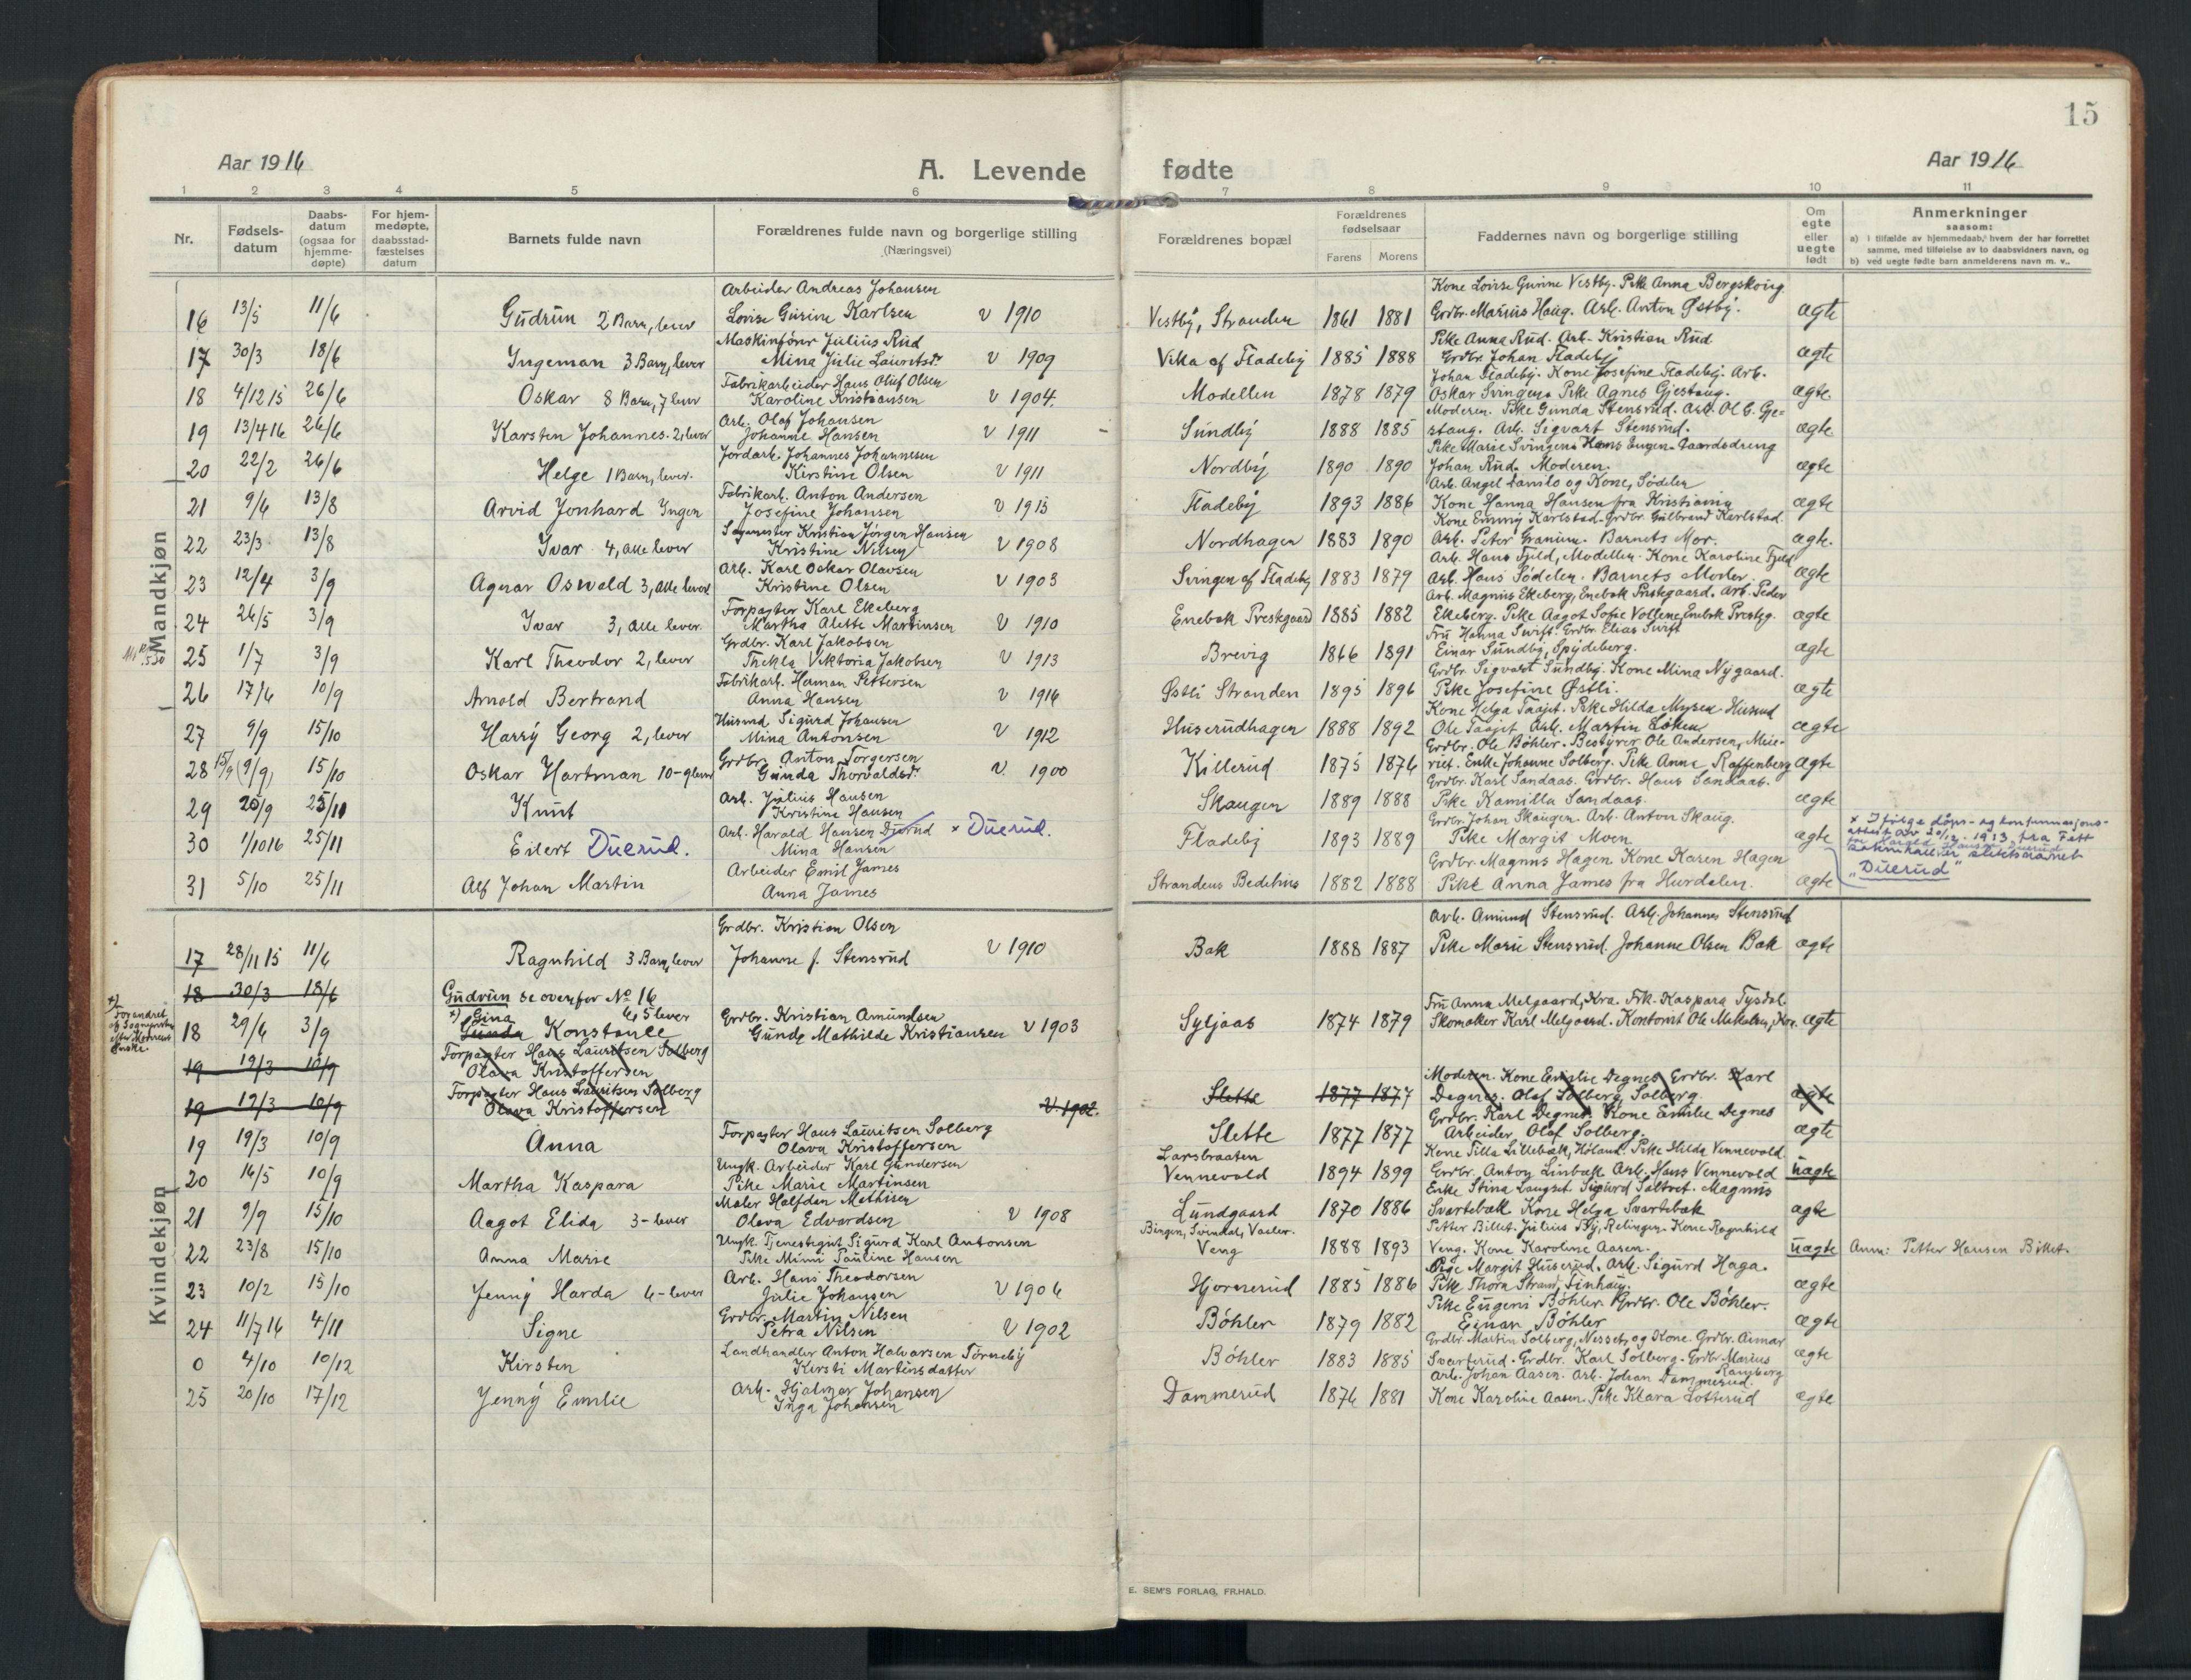 15
Aar 1916
A. Levende fødte
Aar 1916
1 2 3 4 5 6 7 8 9 10 11
Nr.
Fødsels-
datum
Daabs-
datum
(ogsaa for
hjemme-
døpte)
For hjem-
medøpte,
daabsstad-
fæstelses
datum
Barnets fulde navn
Forældrenes fulde navn og borgerlige stilling
(Næringsvei)
Forældrenes bopæl
Forældrenes
fødselsaar
Farens Morens
Faddernes navn og borgerlige stilling
Om
egte
eller
uegte
født
Anmerkninger
saasom:
a) i tilfælde av hjemmedaab, hvem der har forrettet
samme, med tilføielse av to daabsvidners navn, og
b) ved uegte fødte barn anmelderens navn m. v..
Mandkjøn
Arbeider Andreas Johansen Kone Lovise Gurine Vestby. Pike Anna Bergskoug
16 13/5 11/6 Gudrun 2 Barn, lever Lovise Gurine Karlsen v 1910 Vestby, Stranden 1861 1881 Grdbr. Marius Haug. Arb. Anton Østby. ægte
Maskinfører Julius Rud Pike Anna Rud. Arb. Kristian Rud
17 30/3 18/6 Ingeman 3 Barn, lever Mina Julie Lauritsdr v 1909 Veka af Fladeby 1885 1888 Grdbr. Johan Fladeby ægte
Fabrikarbeider Hans Oluf Olsen Johan Fladeby. Kone Josefine Fladeby. Arb.
18 4/12 15 26/6 Oskar 8 Barn, 7 lever Karoline Kristiansen v 1904. Modellen 1878 1879 Oskar Svingen. Pike Agnes Gjestang. ægte.
Arb. Olaf Johansen Moderen. Pike Gunda Stensrud. Arb. Ol C. Gje=
19 13/4 16 26/6 Karsten Johannes. 2, lever Johanne Hansen v 1911 Sundby 1888 1885 stang. Arb. Sigvart Stensrud. ægte
Jordarb. Johannes Johannesen Pike Marie Svingen. Hans Engen. Gaardsdreng
20 22/2 26/6 Helge 1 Barn, lever. Kirstine Olsen v 1911 Nordby 1890 1890 Johan Rud. Moderen. ægte
Fabrikarb. Anton Andersen Arb. Angel og Kone, Sødelen
21 9/6 13/8 Arvid Jonhard Ingen Josefine Johansen v 1915 Fladeby 1893 1886 Kone Hanna Hansen fra Kristiania ægte
Sagmester Kristian Jørgen Hansen Kone Emmy Karlstad. Grdbr. Gulbrand Karlstad.
22 23/3 13/8 Ivar 4, alle lever Kristine Nilsen v 1908 Nordhagen 1883 1890 Arb. Peter Granum. Barnets Mor. ægte.
Arb. Karl Oskar Olavsen Arb. Hans Fjeld, Modellen. Kone Karoline Fjeld
23 12/4 3/9 Agnar Oswald 3, alle lever Kristine Olsen v 1903 Svingen af Fladeby 1883 1879 Arb. Hans Sødelen. Barnets Moder. ægte
Forpagter Karl Ekeberg Arb. Magnus Ekeberg, Enebak Prestegaard. Arb. Peder
24 26/5 3/9 Ivar 3, alle lever. Martha Alette Martinsen v 1910 Enebak Prestegaard 1885 1882 Ekeberg. Pike Aagot Sofie Vollene, Enebak Presteg. ægte
Grdbr. Karl Jakobsen Fru Hanna Swift. Grdbr. Elias Swift
25 1/7 3/9 Karl Theodor 2, lever Thekla Viktoria Jakobsen v 1913 Brevig 1866 1891 Einar Sundby, Spydeberg. ægte
Fabrikarb. Herman Pettersen Grdbr. Sigvart Sundby. Kone Mina Nygaard.
26 17/6 10/9 Arnold Bertrand Anna Hansen v 1916 Østli Stranden 1895 1896 Pike Josefine Østli. ægte
Husmd. Sigurd Johansen Kone Helga Taajet. Pike Hilda Mysen Husrud
27 9/9 15/10 Harry Georg 2, lever Mina Antonsen v 1912 Huserudhagen 1888 1892 Ole Taajet Arb. Martin Løken ægte
Grdbr. Anton Torgersen Grdbr. Ole Bøhler. Bestyrer Ole Andersen, Meie-
28 15/9 (9/9) 15/10 Oskar Hartman 10-9 lever Gunda Thorvaldsdr v. 1900 Killerud 1875 1876 riet. Enke Johanne Solberg. Pike Anna Raffenberg ægte
Arb. Julius Hansen Grdbr. Karl Sandaas. Grdbr. Hans Sandaas.
29 20/9 25/11 Knut Kristine Hansen Skaugen 1889 1888 Pike Kamilla Sandaas. ægte
Arb. Harald Hansen Djurud × Duerud. Grdbr. Johan Skaugen. Arb. Anton Skaug.
30 1/10 16 25/11 Eilert Duerud. Mina Hansen Fladeby 1893 1889 Pike Margit Moen ægte
× Ifølge døps- og konfirmasjons-
attest av
slektsnavnet
"Duerud"
Arbeider Emil James Grdbr. Magnus Hagen Kone Karen Hagen
31 5/10 25/11 Alf Johan Martin Anna James Strandens Bedehus 1882 1888 Pike Anna James fra Hurdalen. ægte
Kvindekjøn
Grdbr. Kristian Olsen Arb. Amund Stensrud. Arb. Johannes Stensrud
17 28/11 15 11/6 Ragnhild 3 Barn, lever Johanne f. Stensrud v 1910 Bak 1888 1887 Pike Marie Stensrud. Johanne Olsen Bak ægte
18 30/3 18/6 Gudrun se ovenfor No 16
×) Forandret
af Sognepresten
efter Moderens
Ønske.
×) Gina 6, 5 lever Grdbr. Kristian Amundsen Fru Anna Melgaard, Kra. Frk. Kaspara Tysdal.
18 29/6 3/9 Gunda Konstance Gunda Mathilde Kristiansen v 1903 Syljaas 1874 1879 Skomaker Karl Melgaard. Kontorist Ole Mikalsen, Kra. ægte
Forpagter Hans Lauritsen Solberg
19 19/3 10/9 Olava Kristoffersen
Forpagter Hans Lauritsen Solberg Moderen. Kone Emilie Degnes, Grdbr. Karl
19 19/3 10/9 Olava Kristoffersen v. 1902. Slette 1877 1877 Degnes. Olaf Solberg, Solberg. ægte
Forpagter Hans Lauritsen Solberg Grdbr. Karl Degnes. Kone Emilie Degnes
19 19/3 10/9 Anna Olava Kristoffersen Slette 1877 1877 Arbeider Olaf Solberg. ægte
Ungk. Arbeider Karl Gundersen Larsbraaten Kone Tilla Lillebæk, Høland. Pike Hilda Vennevold.
20 16/5 10/9 Martha Kaspara Pike Marie Martinsen Vennevold 1894 1899 Grdbr. Anton Linbæk Arb. Hans Vennevold uægte
Maler Halfdan Mathisen Enke Stina Langset. Sigurd Saltvet. Magnus
21 9/9 15/10 Aagot Elida 3- lever Olava Edvardsen v 1908 Lundgaard 1870 1886 Svartebæk Kone Helga Svartebæk ægte
Ungk. Tjenestegut Sigurd Karl Antonsen Bingen, Svindal, Vaaler. Petter Billet. Julius By, Rælingen. Kone Ragnhild
22 23/8 15/10 Anna Marie Pike Mimi Pauline Hansen Veng 1888 1893 Veng. Kone Karoline Aasen. uægte Anm: Petter Hansen Billet.
Arb. Hans Theodorsen Pige Margit Huserud. Arb. Sigurd Haga.
23 10/2 15/10 Jenny Harda 6- lever Julie Johansen v 1906 Hjornerud 1885 1886 Pike Thora Strand, Finhaug. ægte
Grdbr. Martin Nilsen Pike Eugeni Bøhler. Grdbr. Ole Bøhler.
24 11/7 16 4/11 Signe Petra Nilsen v 1902 Bøhler 1879 1882 Einar Bøhler ægte
Landhandler Anton Halvorsen Tørneby Grdbr. Martin Solberg, Nesset, og Kone. Grdbr. Aimar
0 4/10 10/12 Kirsten Kirsti Martinsdatter Bøhler 1883 1885 Svarterud. Grdbr. Karl Solberg. Grdbr. Marius Ramberg ægte
Arb. Hjalmar Johansen Arb. Johan Aasen. Arb. Johan Dammerud.
25 20/10 17/12 Jenny Emilie Inga Johansen Dammerud 1876 1881 Kone Karoline Aasen. Pike Klara Lotterud ægte
E. SEM'S FORLAG, FR.HALD.